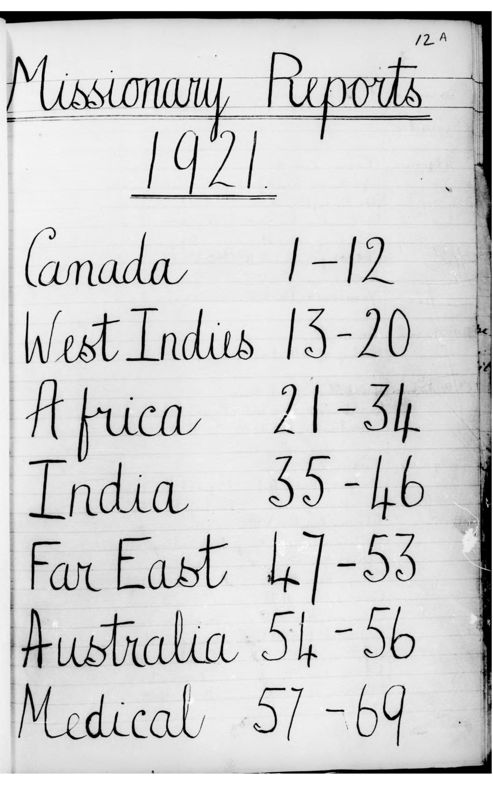 12 A
Missionary Reports
1921.
Canada 1-12
West Indies 13-20
Africa 21-34
India 35-46
Far East 47-53
Australia 54-56
Medical 57-69